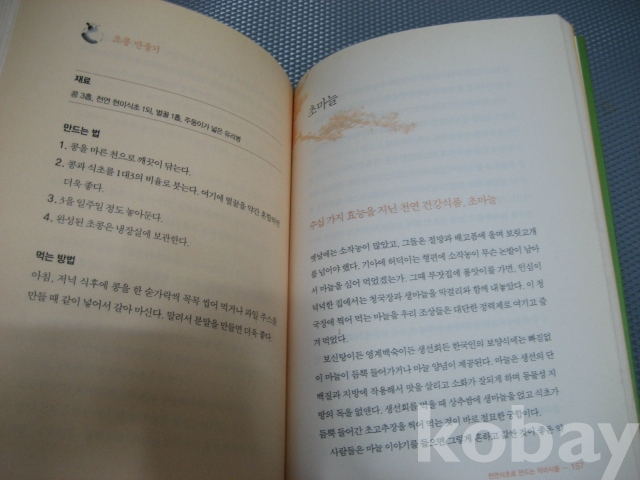 초콩 만들기
재료
콩 3홉, 천연 현미식초 1되, 벌꿀 1홉, 주둥이가 넓은 유리병
만드는 법
1. 콩을 마른 천으로 깨끗이 닦는다.
2. 콩과 식초를 1대3의 비율로 붓는다. 여기에 벌꿀을 약간 혼합하면
더욱 좋다.
3. 5을 일주일 정도 놓아둔다.
4. 완성된 초콩은 냉장실에 보관한다.
먹는 방법
아침, 저녁 식후에 콩을 한 숟가락씩 꼭꼭 씹어 먹거나 과일 주스를
만들 때 같이 넣어서 갈아 마신다. 말려서 분말을 만들면 더욱 좋다.
초마늘
수십 가지 효능을 지닌 천연 건강식품, 초마늘
옛날에는 소작농이 많았고, 그들은 절망과 배고픔에 울며 보릿고개
를 넘어야 했다. 기아에 허덕이는 형편에 소작농이 무슨 논밭이 남아
서 마늘을 심어 먹었겠는가. 그때 부잣집에 품앗이를 가면, 인심이
넉넉한 집에서는 청국장과 생마늘을 막걸리와 함께 내놓았다. 이 청
국장에 찍어 먹는 마늘을 우리 조상들은 대단한 정력제로 여기고 즐
겨 먹었다.
보신탕이든 영계백숙이든 생선회든 한국인의 보양식에는 빠짐없
이 마늘이 듬뿍 들어가거나 마늘 양념이 제공된다. 마늘은 생선의 단
백질과 지방에 작용해서 맛을 살리고 소화가 잘되게 하며 동물성 지
방의 독을 없앤다. 생선회를 먹을 때 상추쌈에 생마늘을 얹고 식초가
듬뿍 들어간 초고추장을 찍어 먹는 것이 바로 절묘한 궁합이다.
사람들은 마늘 이야기를 들으면 그렇게 흔하고 값싼 것이 좋은 약
천연식초로 만드는 약이식품 - 157
kobay